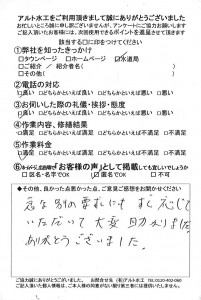 アルト水工をご利用頂きまして誠にありがとうございました
お忙しいところ誠に申し訳ございませんが、アンケートにご協力お願いします
ご記入頂いたお客様には、次回使用できるポイントを進呈させて頂きます
該当するご に印をつけてください
①弊社を知ったきっかけ
□タウンページ □ホームページ □水道局
□ご紹介 / ご紹介者名( )
□その他( )
②電話の対応
□良い □どちらかといえば良い □どちらかといえば悪い □悪い
③お伺いした際の礼儀・挨拶・態度
□良い □どちらかといえば良い □どちらかといえば悪い □悪い
④作業内容、修繕結果
□満足 □どちらかといえば満足 □どちらかといえば不満足 □不満足
⑤作業料金
□満足 □どちらかといえば満足 □どちらかといえば不満足 □不満足
⑥ホームページ、広告等に「お客様の声」として掲載しても宜しいでしょうか
□匿名・名字でOK □匿名でOK □不可
◆その他、良かった点悪かった点、ご意見ご感想をお聞かせください
急な
の電話にも すぐ応じて
いただいて 大変 助かりました。
ありがとうございました。
ご協力誠にありがとうございました。 お問合せ先 (有)アルト水工 TEL.0120-402-060
ご記入頂いた個人情報は、ご本人様の同意がない限り第三者には提供いたしません。